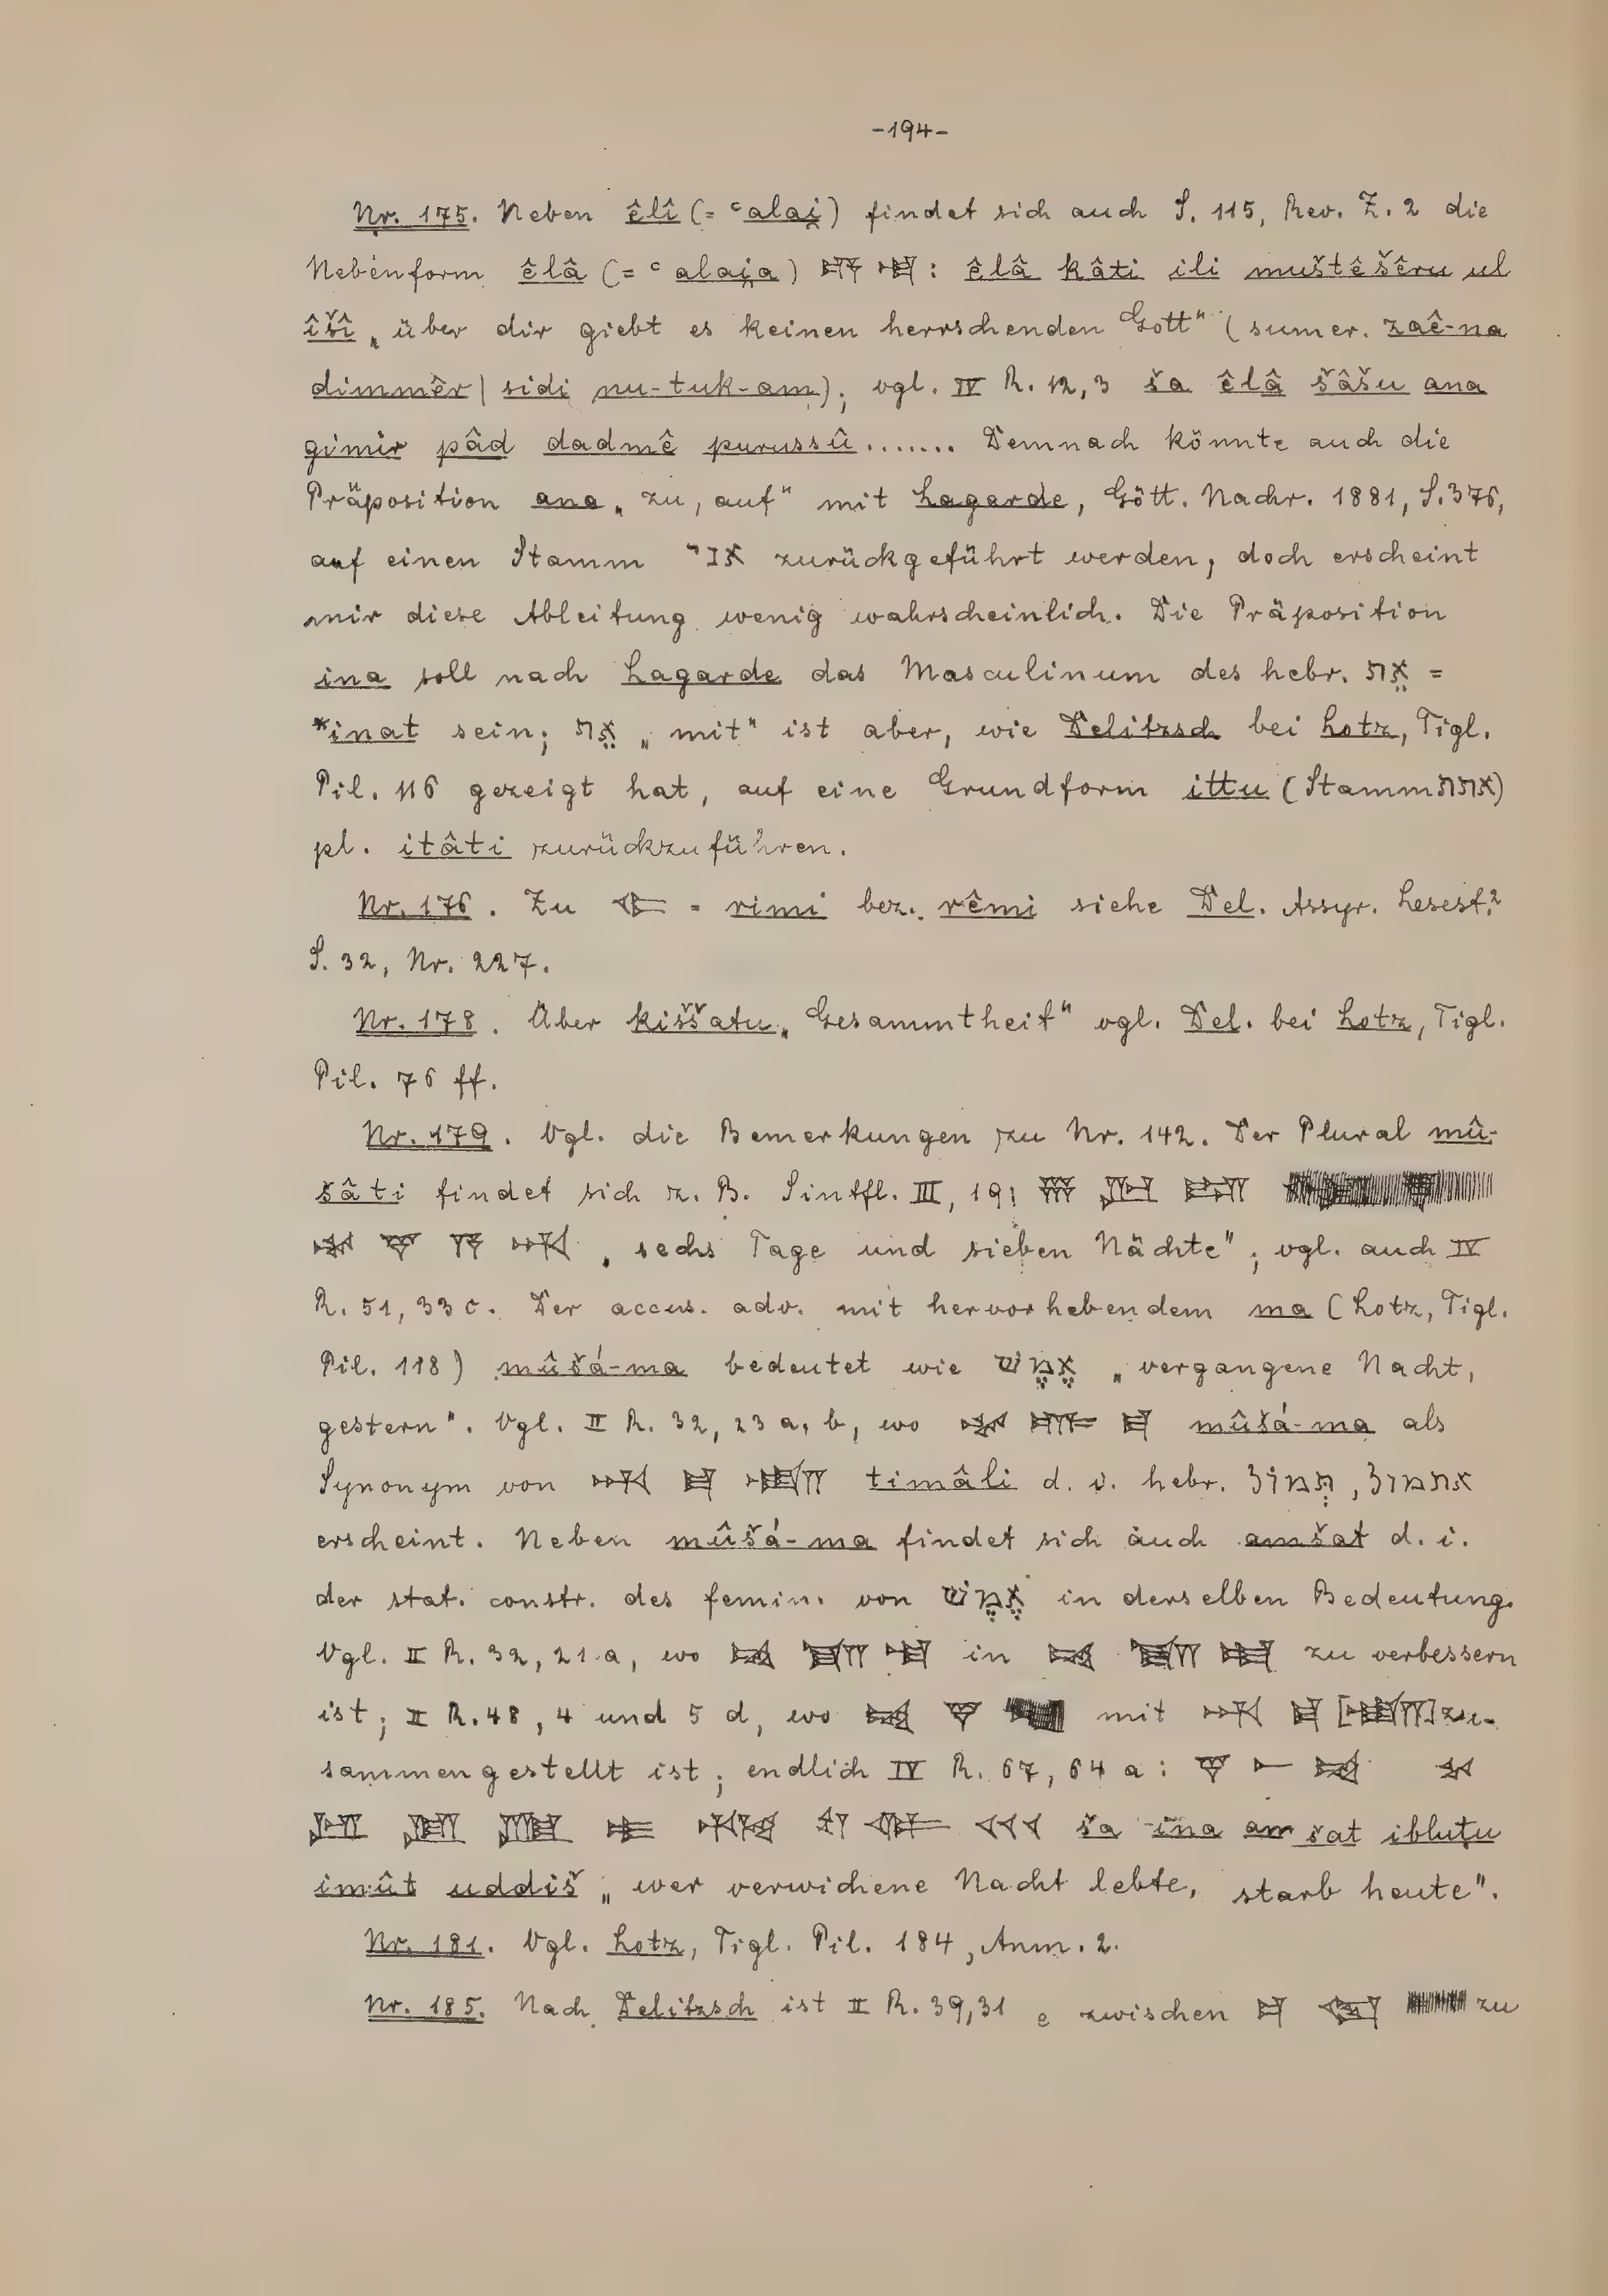 -194-
Nr. 175. Neben êlî (= ᶜalai̯) findet sich auch S. 115, Rev. Z. 2 die
Nebenform êlâ (= ᶜalai̯a) : êlâ kâti ili muštêšêru ul
îšî „über dir giebt es keinen herrschenden Gott" (sumer. zaê-na
dimmêr | sidi nu-tuk-am); vgl. IV R. 12, 3 ša êlâ šâšu ana
gimir pâd dadmê purussû....... Demnach könnte auch die
Präposition ana „zu, auf" mit Lagarde, Gött. Nachr. 1881, S. 376,
auf einen Stamm אני zurückgeführt werden, doch erscheint
mir diese Ableitung wenig wahrscheinlich. Die Präposition
ina soll nach Lagarde das Masculinum des hebr. אֵת =
*inat sein; אֵת „mit" ist aber, wie Delitzsch bei Lotz, Tigl.
Pil. 116 gezeigt hat, auf eine Grundform ittu (Stamm אתת)
pl. itâti zurückzuführen.
Nr. 176. Zu = rimi bez. rêmi siehe Del. Assyr. Lesest.²
S. 32, Nr. 227.
Nr. 178. Über kiššatu „Gesammtheit" vgl. Del. bei Lotz, Tigl.
Pil. 76 ff.
Nr. 179. Vgl. die Bemerkungen zu Nr. 142. Der Plural mû-
šâti findet sich z. B. Sintfl. III, 19:
„sechs Tage und sieben Nächte"; vgl. auch IV
R. 51, 33 c. Der accus. adv. mit hervorhebendem ma (Lotz, Tigl.
Pil. 118) mûšá-ma bedeutet wie אֶמֶשׁ „vergangene Nacht,
gestern". Vgl. II R. 32, 23 a, b, wo mûšá-ma als
Synonym von timâli d. i. hebr. תְמוֹל, אתמול
erscheint. Neben mûšá-ma findet sich auch amšat d. i.
der stat. constr. des femin. von אֶמֶשׁ in derselben Bedeutung.
Vgl. II R. 32, 21 a, wo in zu verbessern
ist; II R. 48, 4 und 5 d, wo mit [ ] zu-
sammengestellt ist; endlich IV R. 67, 64 a:
ša ina amšat ibluṭu
imût uddiš „wer verwichene Nacht lebte, starb heute".
Nr. 181. Vgl. Lotz, Tigl. Pil. 184, Anm. 2.
Nr. 185. Nach Delitzsch ist II R. 39, 31 e zwischen zu